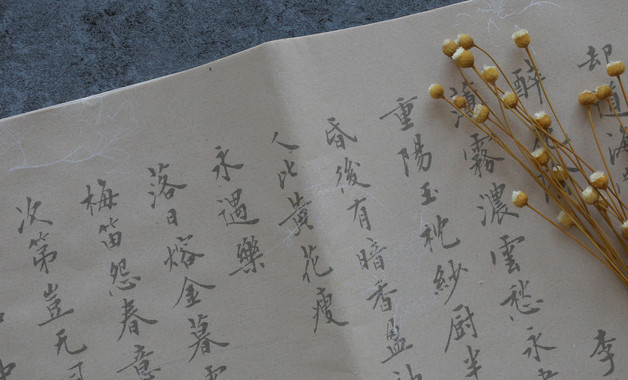 却道海
醉花陰李
薄霧濃雲愁永
重陽玉枕紗厨半
昏後有暗香盈
人比黃花瘦
永遇樂
落日熔金暮
梅笛怨春意
次第豈无